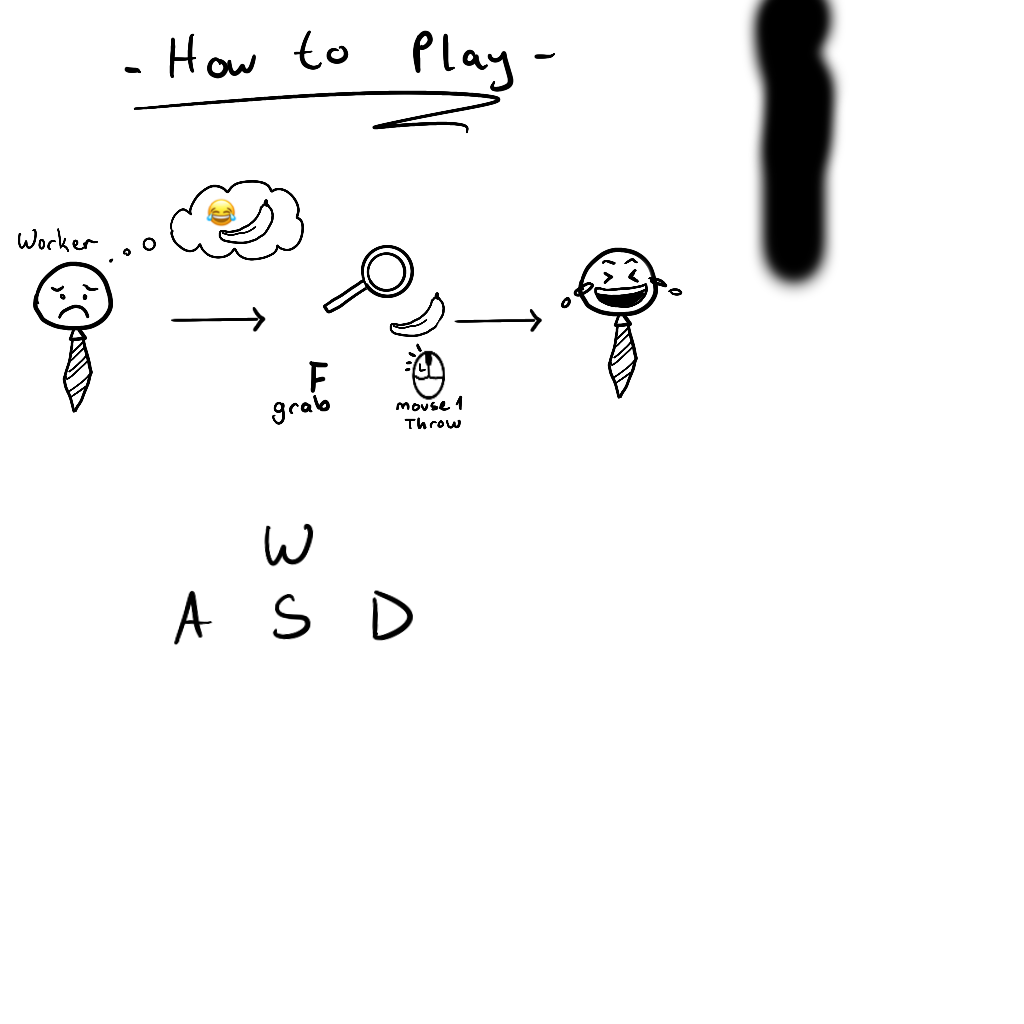 - How to Play -
Worker
F
grab
mouse 1
Throw
W
A S D